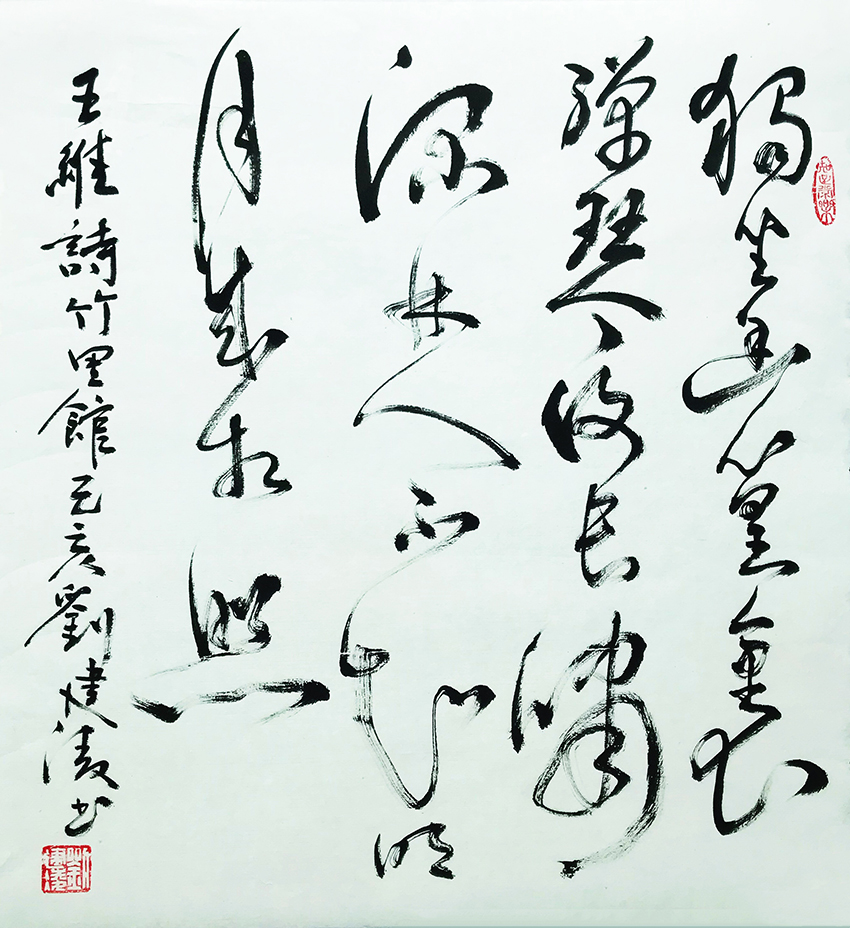 獨坐幽篁裏
彈琴復長嘯
深林人不知明
月來相照
王維詩竹里館己亥劉建書
知足常樂